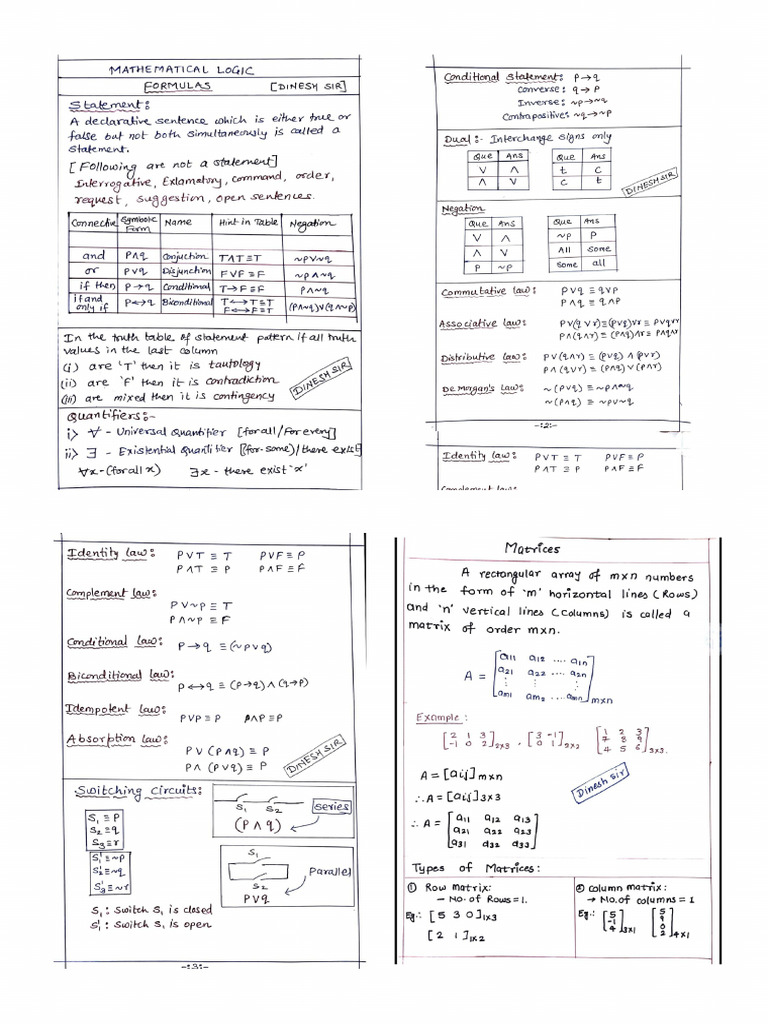 MATHEMATICAL LOGIC
FORMULAS [DINESH SIR]
Statement:
A declarative sentence which is either true or
false but not both simultaneously is called a
statement.
[Following are not a statement]
Interrogative, Exlamatory, command, order,
request, suggestion, open sentences.
Connective Symbolic Form Name Hint in Table Negation
and P∧q Conjuction T∧T≡T ~P∨~q
or P∨q Disjunction F∨F≡F ~P∧~q
if then P→q Conditional T→F≡F P∧~q
if and only if P↔q Biconditional T↔T≡T F↔F≡T (P∧~q)∨(q∧~P)
In the truth table of statement pattern if all truth
values in the last column
(i) are 'T' then it is tautology
(ii) are 'F' then it is contradiction
(iii) are mixed then it is contingency
DINESH SIR
Quantifiers:-
i> ∀ - Universal Quantifier [for all/For every]
ii> ∃ - Existential Quantifier [for some)/there exist]
∀x - (for all x) ∃x - there exist 'x'
Conditional statement: P→q
Converse: q→P
Inverse: ~P→~q
Contrapositive: ~q→~P
Dual:- Interchange signs only
Que Ans Que Ans
∨ ∧ t c
∧ ∨ c t
DINESH SIR
Negation
Que Ans Que Ans
∨ ∧ ~P P
∧ ∨ All Some
P ~P Some all
Commutative law: P∨q ≡ q∨P
P∧q ≡ q∧P
Associative law: P∨(q∨r)≡(P∨q)∨r ≡ P∨q∨r
P∧(q∧r) ≡ (P∧q)∧r ≡ P∧q∧r
Distributive law: P∨(q∧r) ≡ (P∨q) ∧ (P∨r)
P∧(q∨r) ≡ (P∧q)∨(P∧r)
De Morgan's law: ~(P∨q) ≡ ~P∧~q
~(P∧q) ≡ ~P∨~q
-:2:-
Identity law: P∨T ≡ T P∨F≡ P
P∧T ≡ P P∧F≡F
Complement law:
Identity law: P∨T ≡ T P∨F ≡ P
P∧T ≡ P P∧F≡F
Complement law:
P∨~P ≡ T
P∧~P ≡ F
Conditional law: P→q ≡(~P∨q)
Biconditional law:
P↔q ≡ (P→q)∧(q→P)
Idempotent law:
P∨P≡P P∧P≡P
Absorption law:
P∨(P∧q) ≡ P
P∧(P∨q) ≡ P
DINESH SIR
Switching circuits:
S₁ ≡ P
S₂ ≡q
S₃≡r
S₁'≡~P
S₂'≡~q
S₃'≡~r
S₁ S₂ series
(P∧q)
S₁
Parallel
S₂
P∨q
S₁: Switch S₁ is closed
S₁': Switch S₁ is open
-:3:-
Matrices
A rectangular array of mxn numbers
in the form of 'm' horizontal lines (Rows)
and 'n' vertical lines (Columns) is called a
matrix of order mxn.
a11 a12 .... a1n
A = a21 a22 .... a2n
⋮ ⋮ ⋮
am1 am2 .... amn mxn
Example:
[2 1 3 [3 -1] [1 2 3
-1 0 2]2x3 , [0 1]2x2 7 8 9
4 5 6]3x3.
A = [aij]mxn
∴A = [aij]3x3
Dinesh sir
a11 a12 a13
∴ A = a21 a22 a23
a31 a32 a33
Types of Matrices:
① Row matrix:
- No. of Rows=1.
Eg.: [5 3 0]1x3
[2 1]1x2
② Column matrix:
→ No. of columns = 1
Eg.: [5 -1 4]3x1 [5 9 0 2]4x1